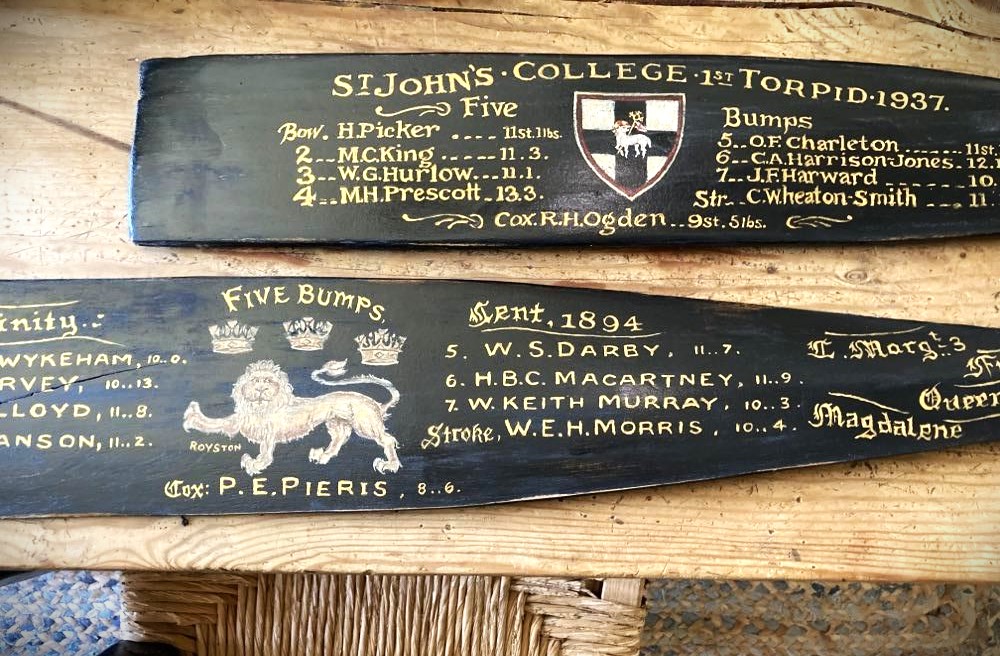 ST JOHN'S · COLLEGE · 1ST TORPID · 1937.
Five
Bow. H.Picker .... 11st.1lbs.
2.. M.C.King ..... 11.3.
3.. W.G.Hurlow... 11.1.
4.. M.H.Prescott.. 13.3.
Bumps
5.. O.F. Charleton ....... 11st.
6.. C.A.Harrison-Jones. 12.
7... J.F.Harward ...... 10.
Str... C.Wheaton-Smith .... 11.
Cox. R.H.Ogden.. 9st. 5lbs.
FIVE BUMPS.
inity.
WYKEHAM, 10..0.
RVEY, 10..13.
LLOYD, 11..8.
ANSON, 11..2.
ROYSTON
Cox: P.E.PIERIS, 8..6.
Lent, 1894
5. W.S.DARBY, 11..7.
6. H.B.C. MACARTNEY, 11..9.
7. W. KEITH MURRAY, 10..3.
Stroke, W.E.H.MORRIS, 10..4.
L. Margt. 3
Queen
Magdalene